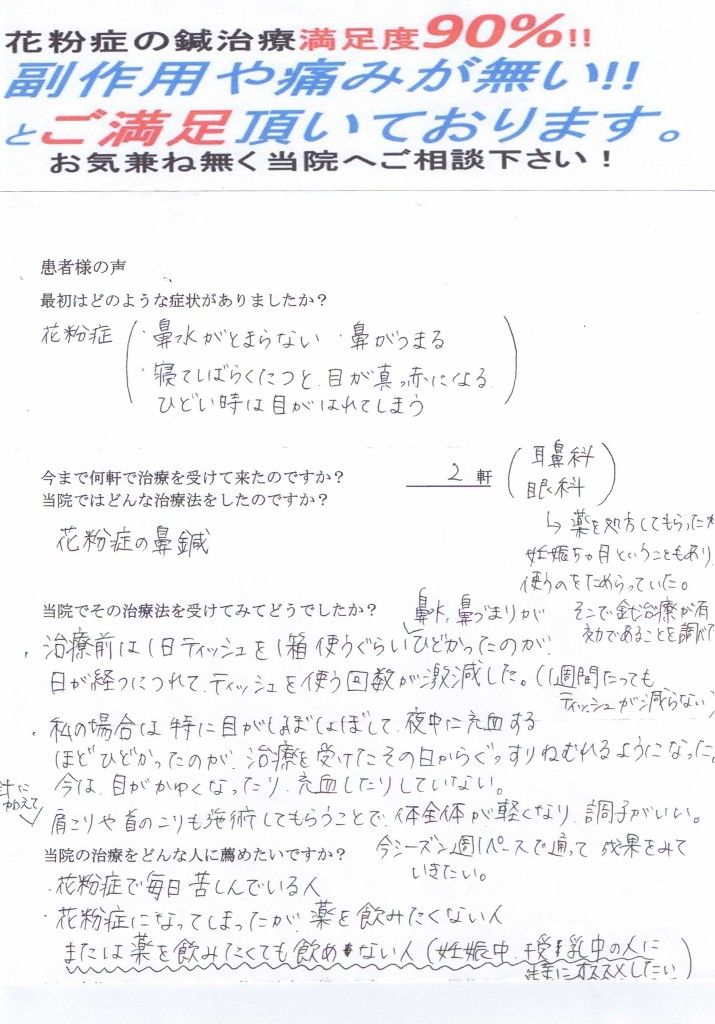 花粉症の鍼治療満足度90%!!
副作用や痛みが無い!!
とご満足頂いております。
お気兼ね無く当院へご相談下さい!
患者様の声
最初はどのような症状がありましたか?
花粉症
・鼻水がとまらない ・鼻がつまる
・寝てしばらくたつと、目が真っ赤になる
ひどい時は目がはれてしまう
今まで何軒で治療を受けて来たのですか? 2 軒
(耳鼻科
眼科)
当院ではどんな治療法をしたのですか?
花粉症の鼻鍼
↳ 薬を処方してもらったが
妊娠5ヵ月ということもあり、
使うのをためらっていた。
そこで鍼治療が有
効であることを調べて
当院でその治療法を受けてみてどうでしたか?
鼻水、鼻づまりが
・治療前は1日ティッシュを1箱使うぐらいひどかったのが、
日が経つにつれて、ティッシュを使う回数が激減した。(1週間たっても
ティッシュが減らない)
・私の場合は特に目がしょぼしょぼして、夜中に充血する
ほどひどかったのが、治療を受けたその日からぐっすりねむれるようになった。
今は、目がかゆくなったり、充血したりしていない。
肩こりや首のこりも施術してもらうことで、体全体が軽くなり、調子がいい。
今シーズン週1ペースで通って 成果をみて
いきたい。
当院の治療をどんな人に薦めたいですか?
・花粉症で毎日苦しんでいる人
・花粉症になってしまったが、薬を飲みたくない人
または薬を飲みたくても飲めない人(妊娠中、授乳中の人に
特にオススメしたい)